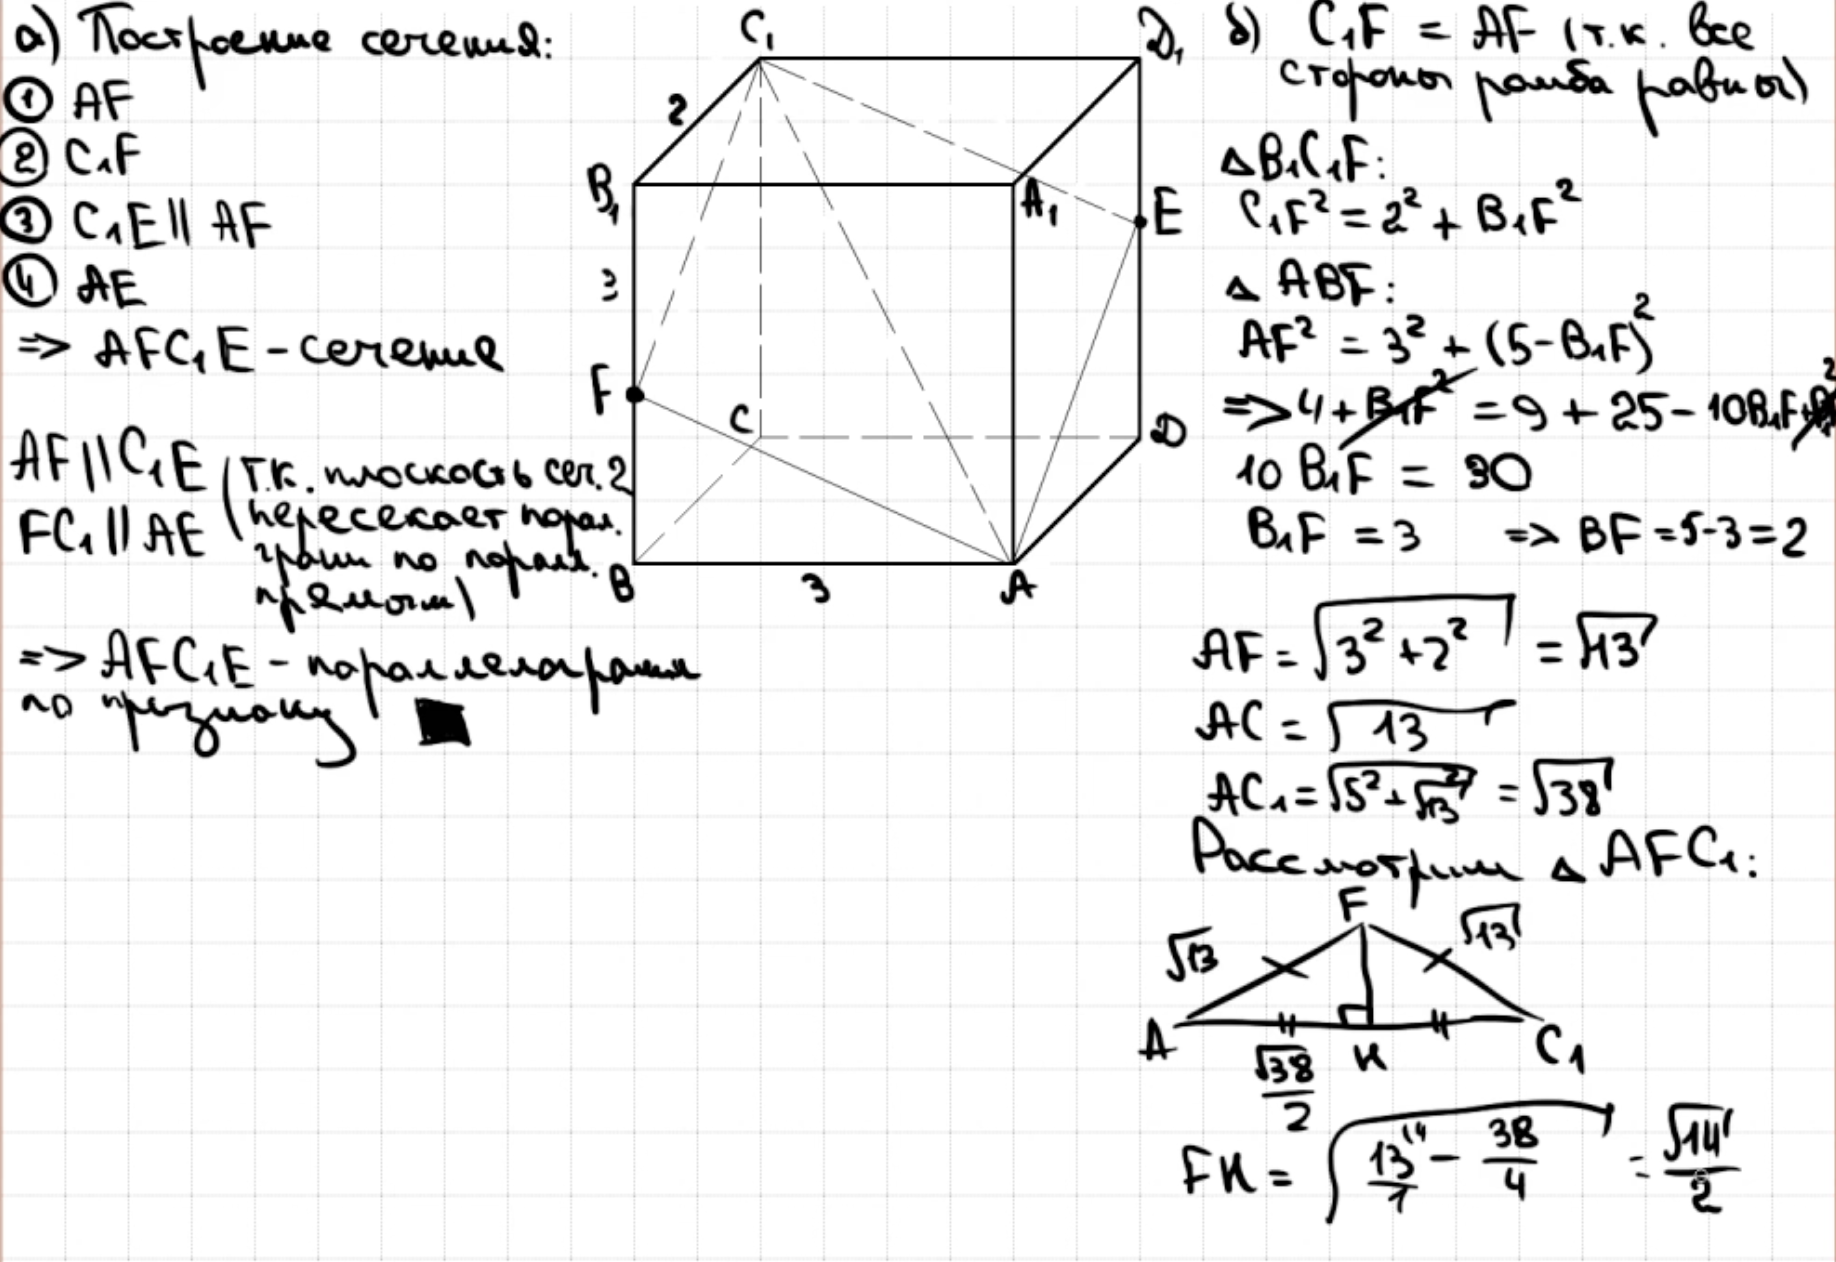 а) Построение сечения:
① AF
② C₁F
③ C₁E || AF
④ AE
=> AFC₁E - сечение
AF || C₁E (т.к. плоскость сеч.
FC₁ || AE пересекает парал.
грани по паралл.
прямым)
=> AFC₁E - параллелограмм
по признаку
C₁
D₁
2
B₁
A₁
E
3
F
C
D
2
B
3
A
б) C₁F = AF (т.к. все
стороны ромба равны)
△B₁C₁F:
C₁F² = 2² + B₁F²
△ ABF:
AF² = 3² + (5-B₁F)²
=> 4 + B₁F² = 9 + 25 - 10B₁F + B₁F²
10 B₁F = 30
B₁F = 3 => BF = 5-3 = 2
AF = √3² + 2² = √13
AC = √13
AC₁ = √5² + √13² = √38
Рассмотрим △ AFC₁:
F
√13 √13
A H C₁
√38/2
FH = √13/1 ⁽⁴ - 38/4 = √14/2